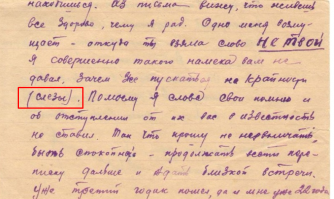 находишся. Из письма вижу, что живешь
все здорово, чему я рад. Одно меня возму-
щает - откуда ты взяла слово НЕ ТВОЙ
Я совершенно такого намека вам не
давал. Зачем же пускаться на крайности
(слезы). Помоему я слова свои помню и
об отступлении от их вас в известность
не ставил. Так что прошу не нервничать,
быть спокойной - продолжать вести пере-
писку дальше и ждать близкой встречи.
Уже третий годик пошел, да и мне уже 26 года